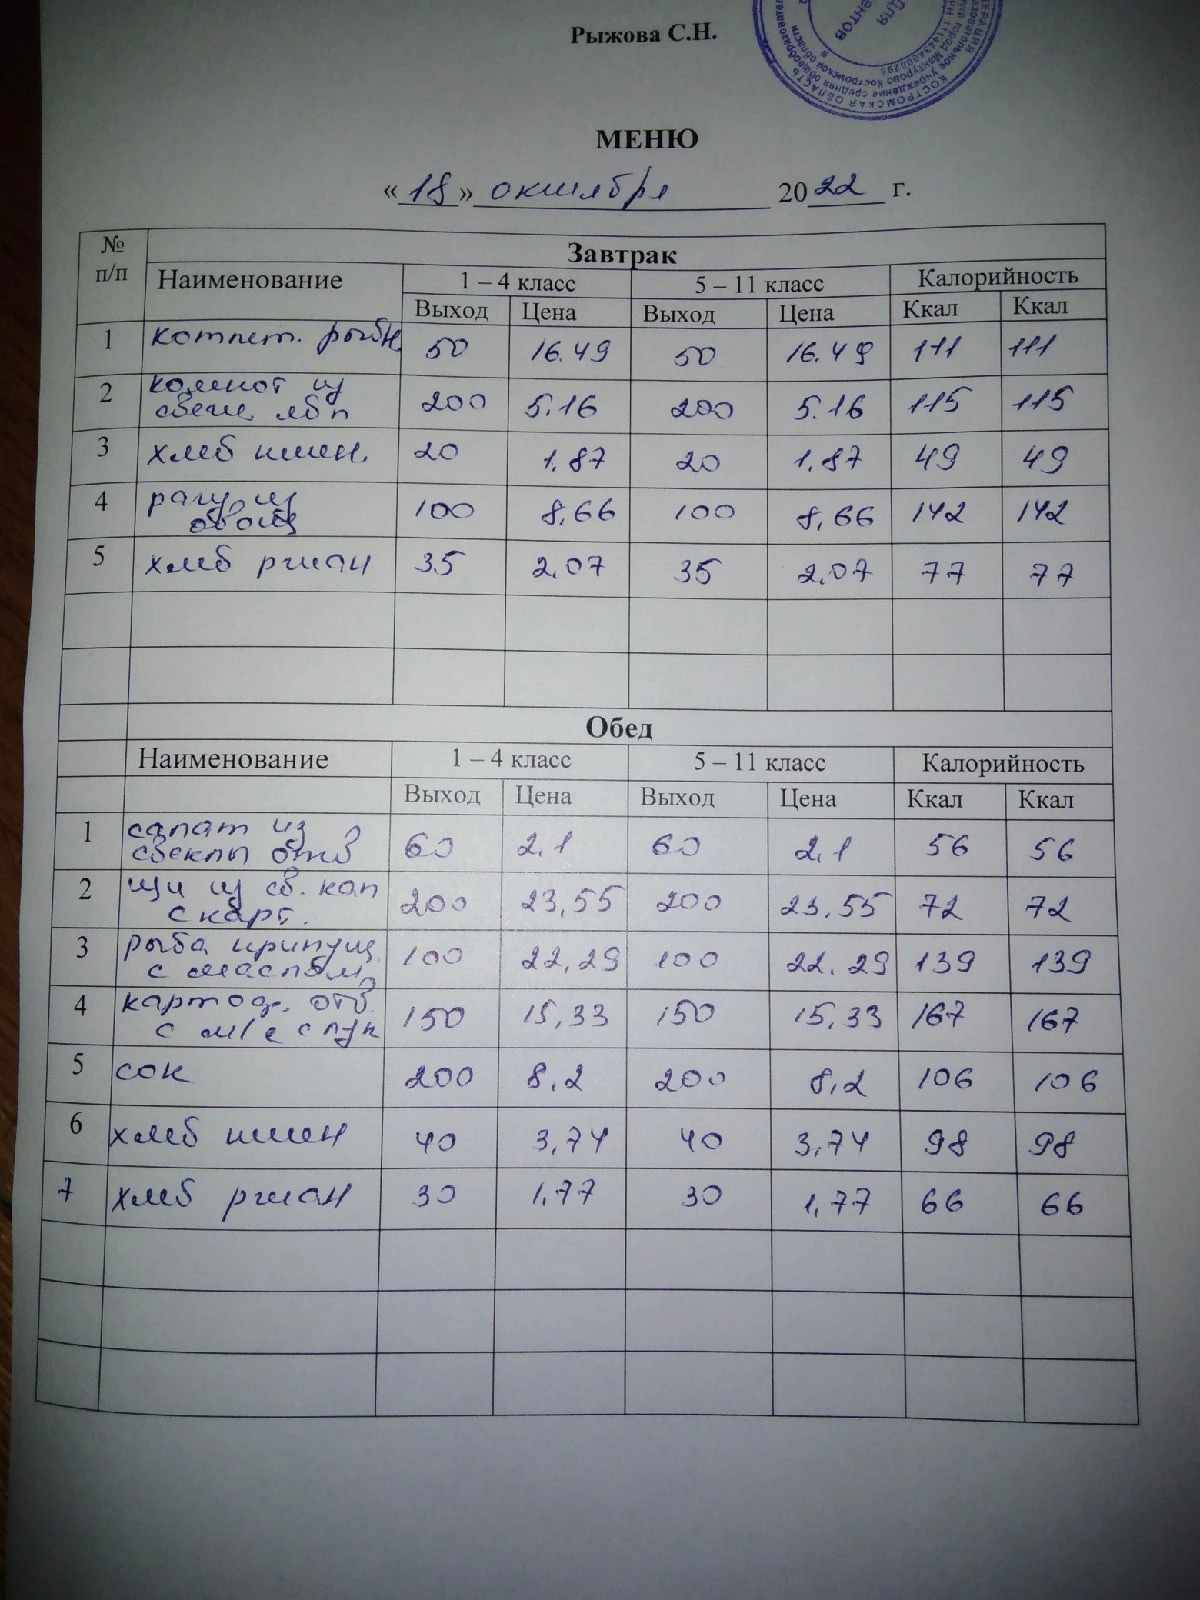 Рыжова С.Н.
КОСТРОМСКАЯ ОБЛАСТЬ
Для
МЕНЮ
«18» октября 2022 г.
№ п/п
Завтрак
Наименование 1 – 4 класс 5 – 11 класс Калорийность
Выход Цена Выход Цена Ккал Ккал
1 котлет. рыбн. 50 16.49 50 16.49 111 111
2 компот из
свеж. ябл 200 5.16 200 5.16 115 115
3 хлеб пшен. 20 1.87 20 1.87 49 49
4 рагу из
овощ 100 8,66 100 8,66 142 142
5 хлеб ржан 35 2.07 35 2.07 77 77
Обед
Наименование 1 – 4 класс 5 – 11 класс Калорийность
Выход Цена Выход Цена Ккал Ккал
1 салат из
свеклы отв 60 2.1 60 2.1 56 56
2 щи из св. кап
с карт. 200 23,55 200 23.55 72 72
3 рыба припущ.
с маслом 100 22,29 100 22.29 139 139
4 картоф. отв.
с м/с с лук 150 15,33 150 15,33 167 167
5 сок 200 8,2 200 8,2 106 106
6 хлеб пшен 40 3,74 40 3,74 98 98
7 хлеб ржан 30 1,77 30 1,77 66 66